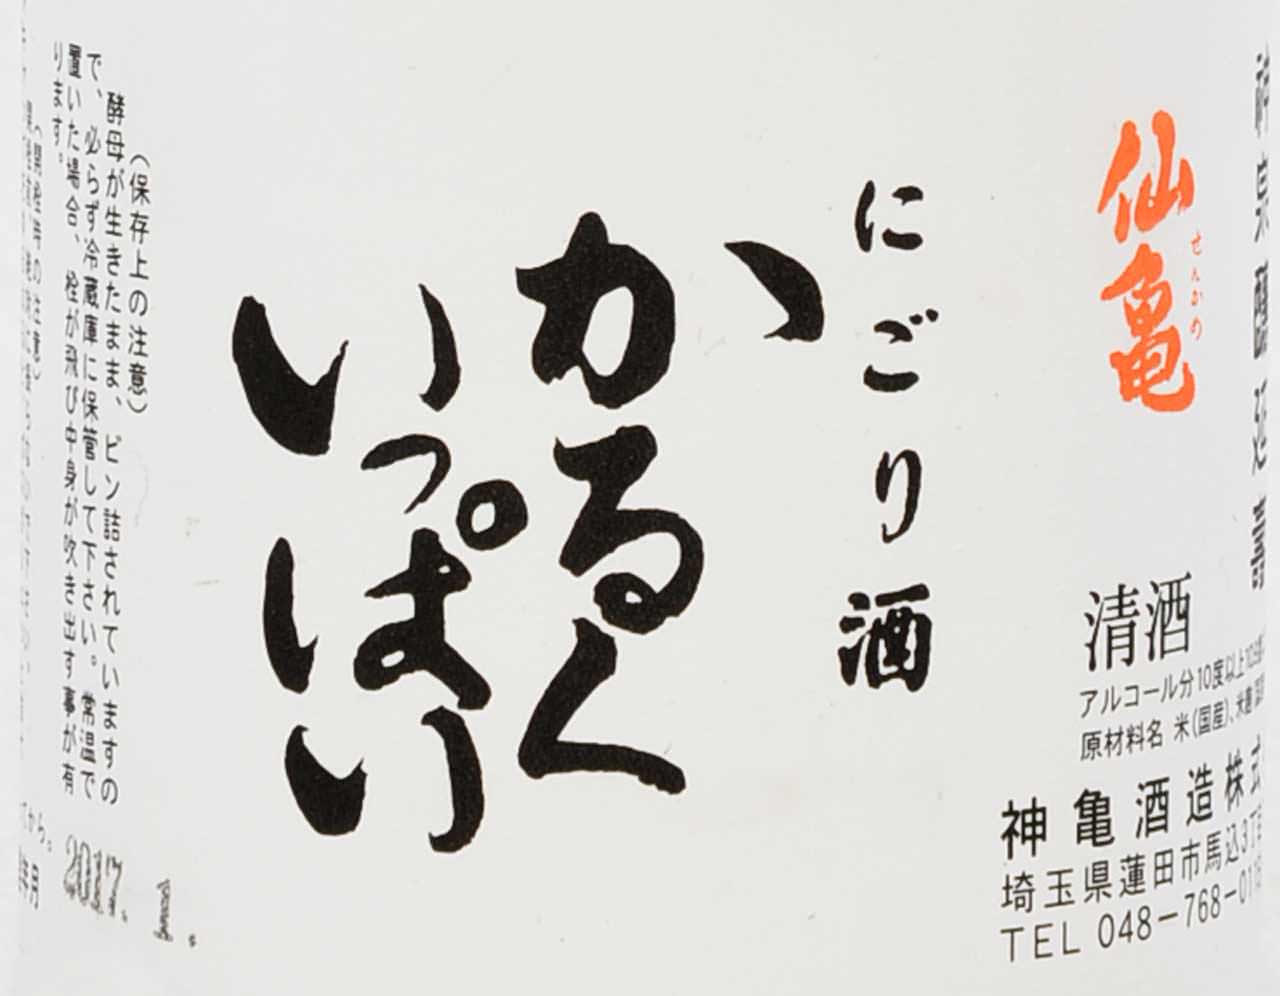 仙亀
せんかめ
清酒
アルコール分10度以上
原材料名 米(国産)、米麹
神亀酒造株式
埼玉県蓮田市馬込3丁
TEL 048-768-011
にごり酒
かるく
いっぱい
(保存上の注意)
酵母が生きたまま、ビン詰されていますの
で、必らず冷蔵庫に保管して下さい。常温で
置いた場合、栓が飛び中身が吹き出す事が有
ります。
2017. 1.
(開栓時の注意)